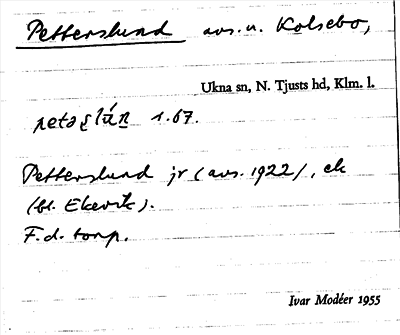 Petterslund avs. u. Kolsebo,
Ukna sn, N. Tjusts hd, Klm. l.
1.67.
Petterslund jr (avs. 1922), ek
(bl. Ekevik).
F.d. torp.
Ivar Modéer 1955